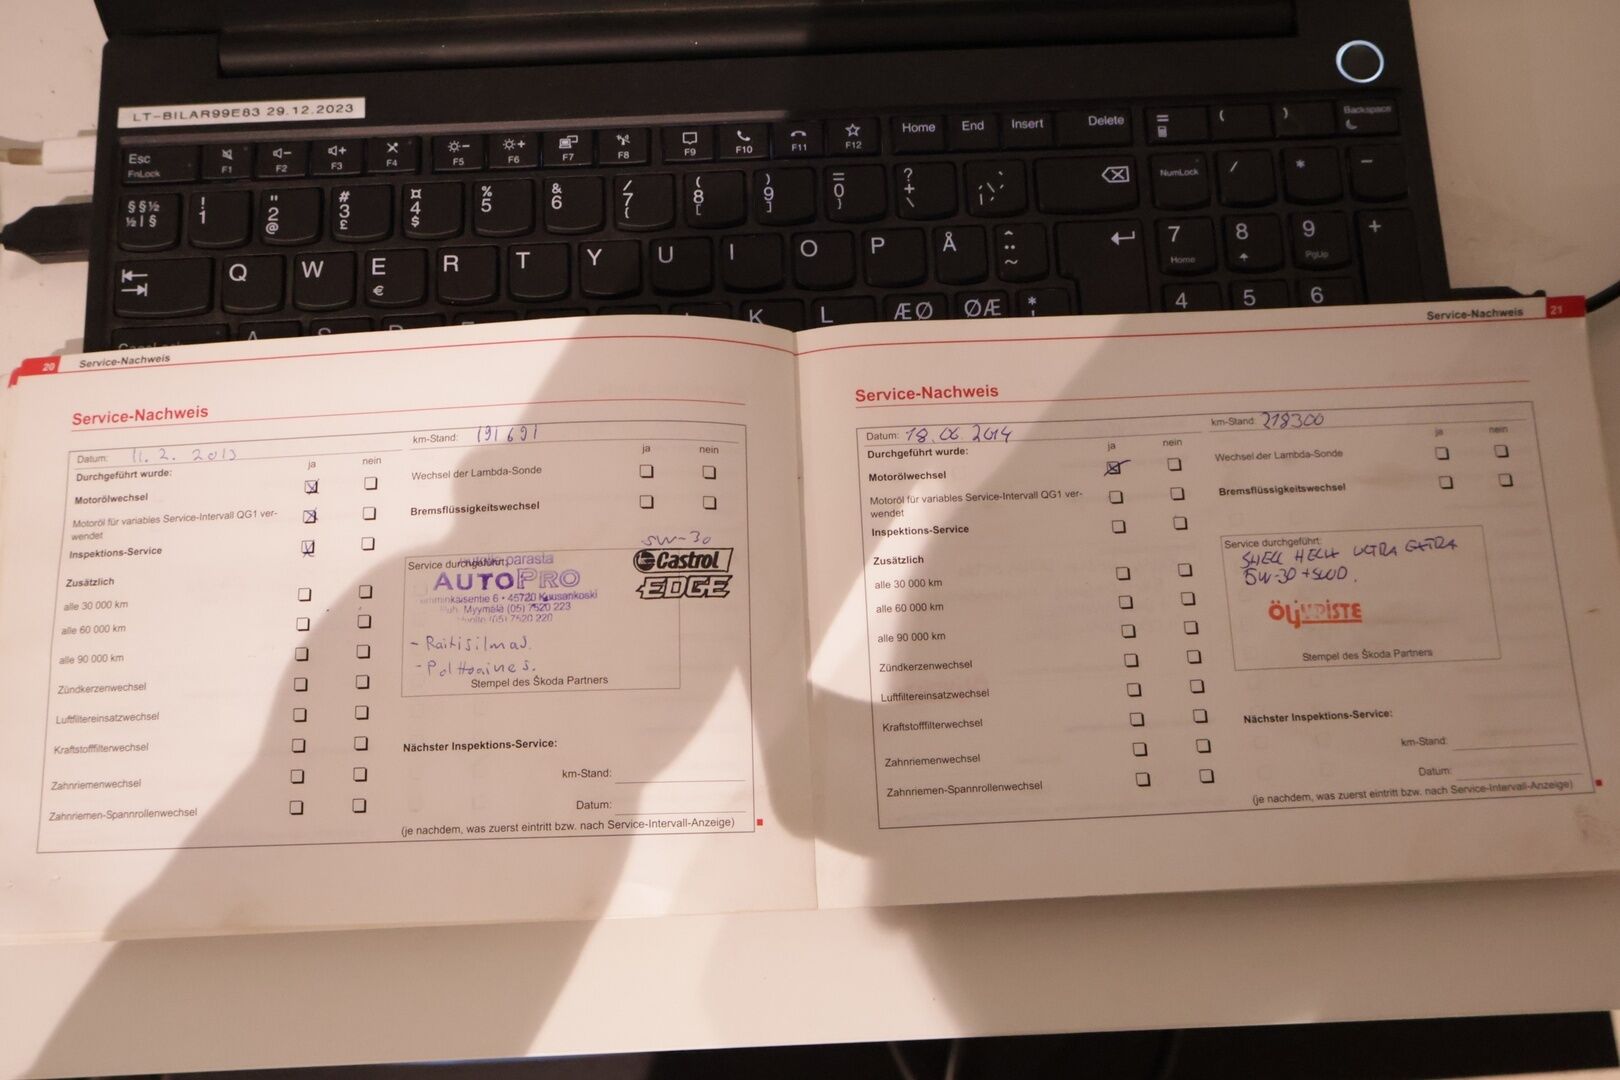 LT-BILAR99E83 29.12.2023
Esc FnLock F1 F2 F3 F4 F5 F6 F7 F8 F9 F10 F11 F12 Home End Insert Delete = ( ) Backspace
§ § ½ ½ | § ! 1 " 2 @ # 3 £ ¤ 4 $ % 5 & 6 / 7 { ( 8 [ ) 9 ] = 0 } ? + \ NumLock / * -
Q W E € R T Y U I O P Å ^ ¨ ~ 7 Home 8 9 PgUp +
K L ÆØ ØÆ * ' 4 5 6
20 Service-Nachweis
Service-Nachweis
Datum: 11. 2. 2013 km-Stand: 191691
Durchgeführt wurde: ja nein ja nein
Motorölwechsel
Wechsel der Lambda-Sonde
Motoröl für variables Service-Intervall QG1 ver-
wendet
Bremsflüssigkeitswechsel
Inspektions-Service
Zusätzlich
alle 30 000 km
alle 60 000 km
alle 90 000 km
Zündkerzenwechsel
Luftfiltereinsatzwechsel
Kraftstofffilterwechsel
Zahnriemenwechsel
Zahnriemen-Spannrollenwechsel
5W-30
Castrol
EDGE
Service durchgeführt: parasta
AUTOPRO
6 • 45720 Kuusankoski
Myymälä (05) 7520 223
(05) 7520 220
- Raitisilmas.
- Polttoaines.
Stempel des Škoda Partners
Nächster Inspektions-Service:
km-Stand:
Datum:
(je nachdem, was zuerst eintritt bzw. nach Service-Intervall-Anzeige)
Service-Nachweis 21
Service-Nachweis
Datum: 18.06.2014 km-Stand: 218300
Durchgeführt wurde: ja nein ja nein
Motorölwechsel
Wechsel der Lambda-Sonde
Motoröl für variables Service-Intervall QG1 ver-
wendet
Bremsflüssigkeitswechsel
Inspektions-Service
Zusätzlich
alle 30 000 km
alle 60 000 km
alle 90 000 km
Zündkerzenwechsel
Luftfiltereinsatzwechsel
Kraftstofffilterwechsel
Zahnriemenwechsel
Zahnriemen-Spannrollenwechsel
Service durchgeführt:
SHELL HELIX ULTRA EXTRA
5W-30 + SUOD.
ÖljYPISTE
Stempel des Škoda Partners
Nächster Inspektions-Service:
km-Stand:
Datum:
(je nachdem, was zuerst eintritt bzw. nach Service-Intervall-Anzeige)